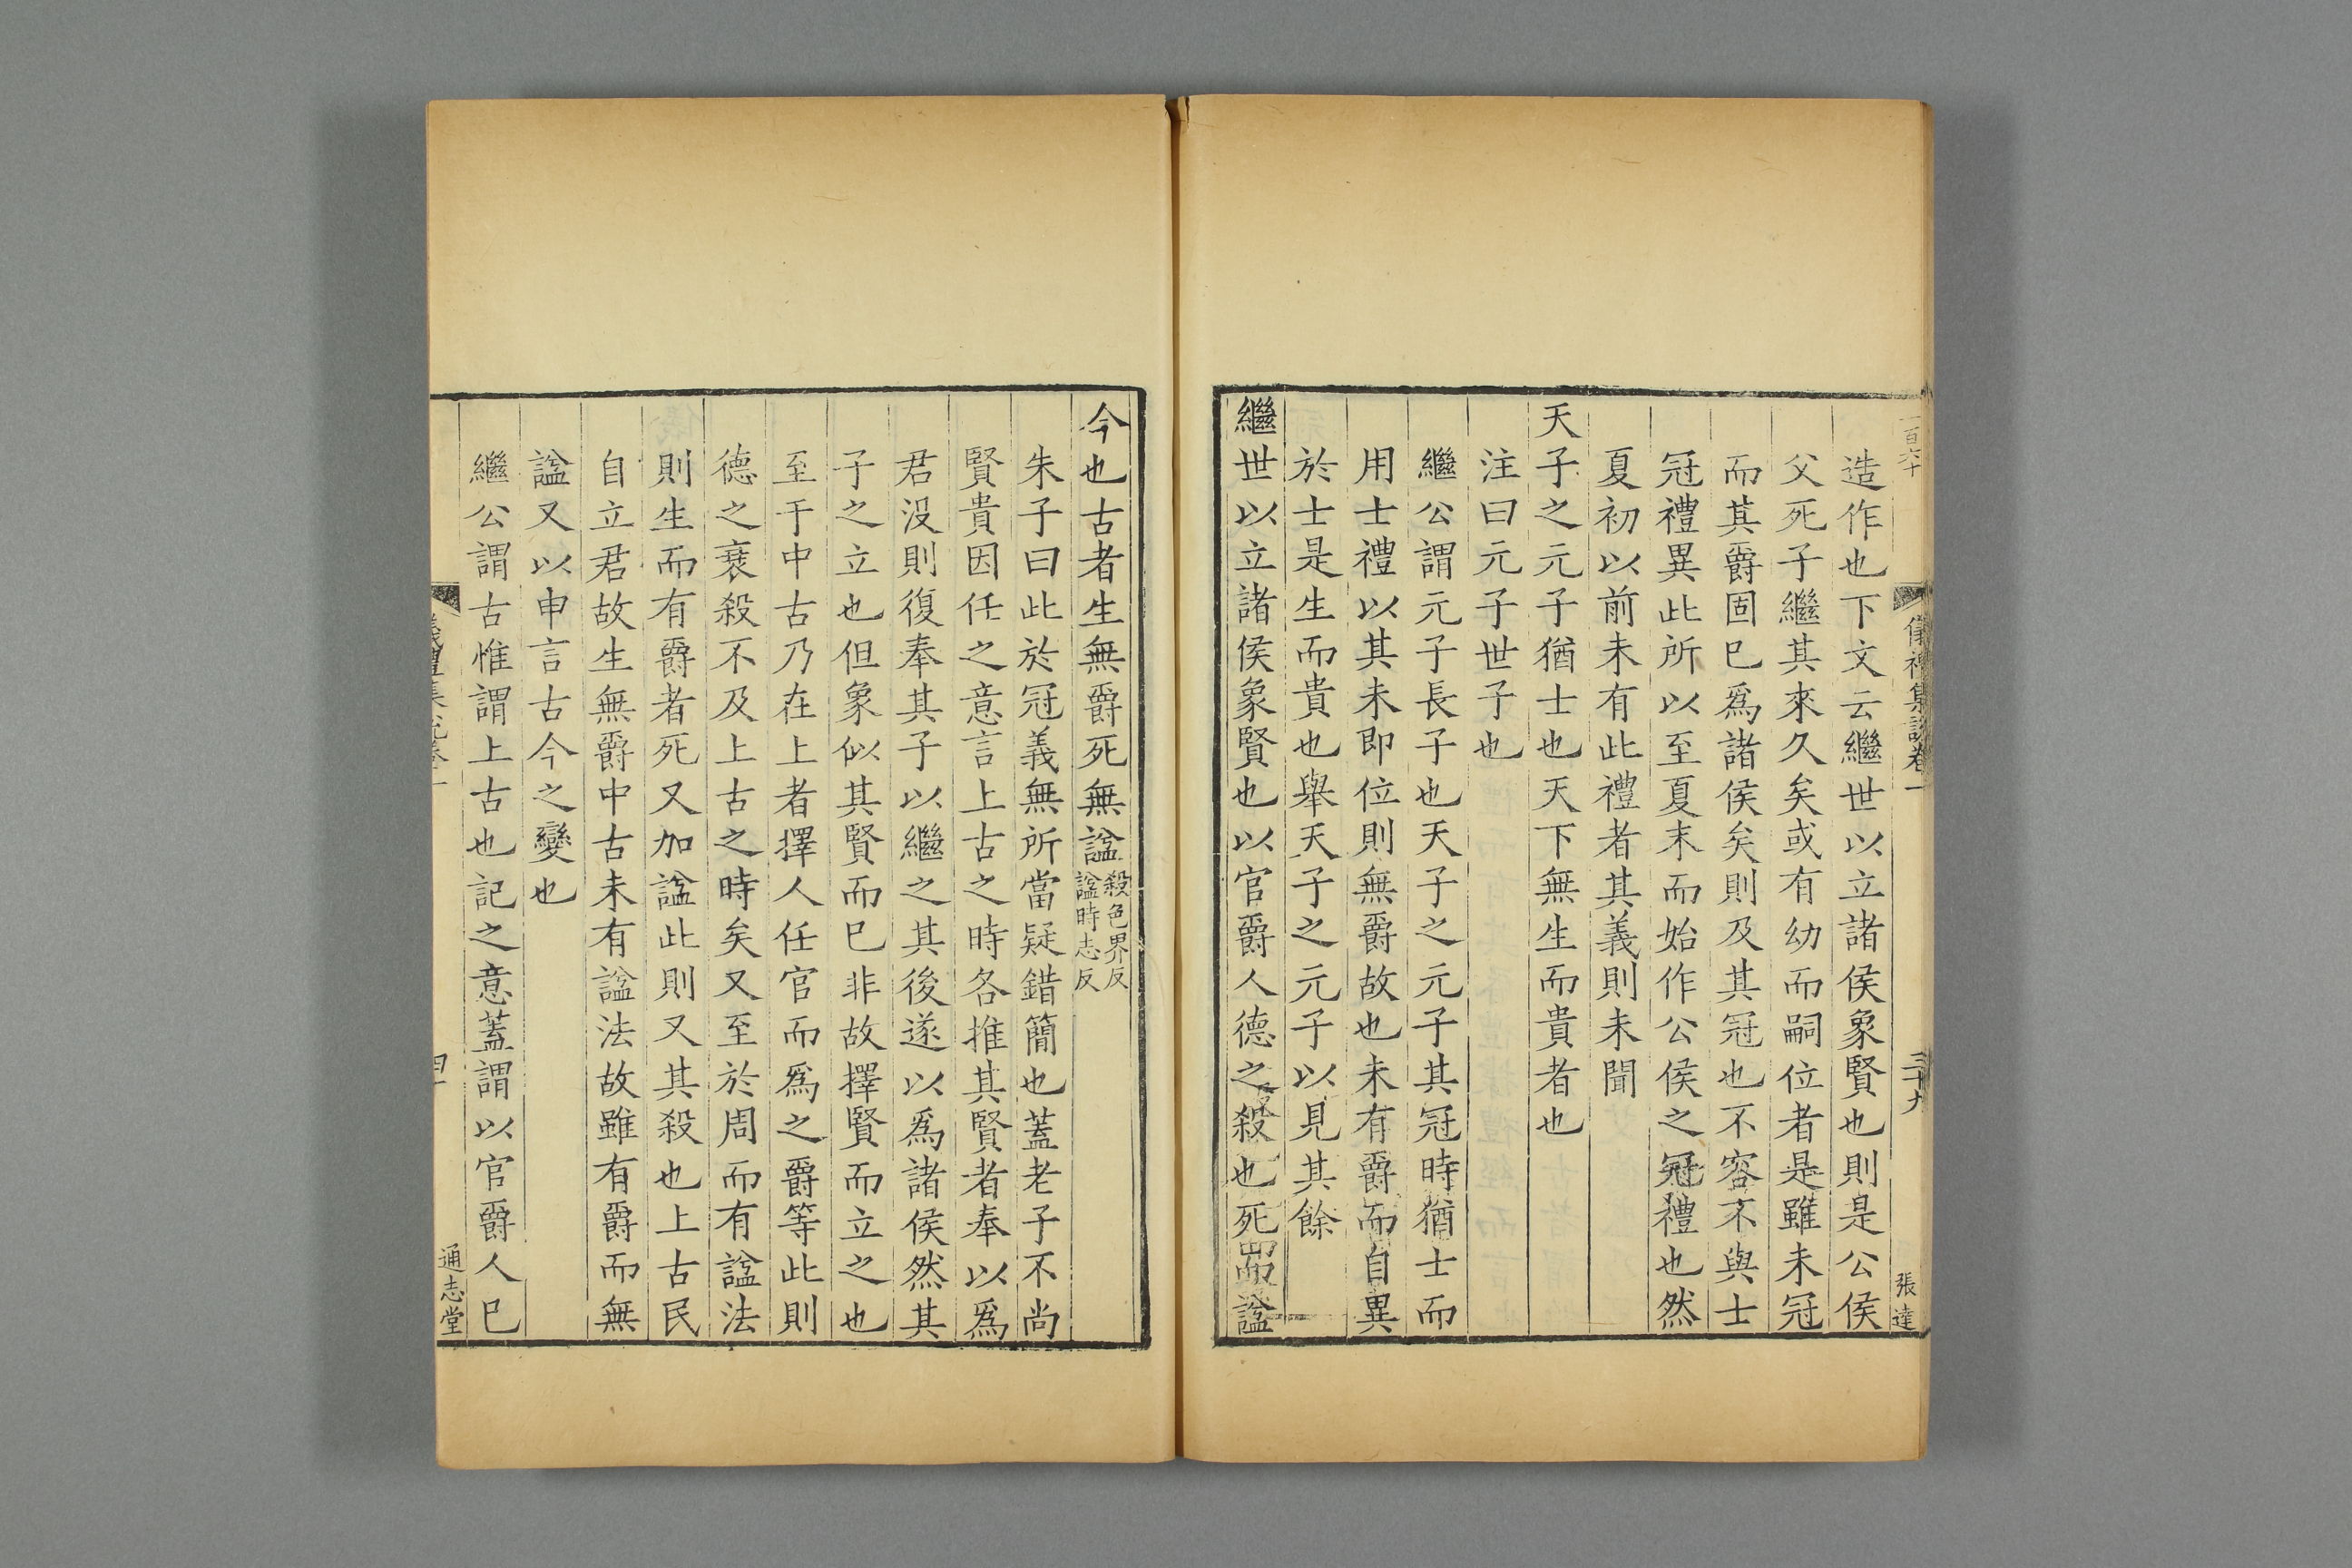 一百六十
儀禮集說卷一
三十九
張達
造作也下文云繼世以立諸侯象賢也則是公侯
父死子繼其來久矣或有幼而嗣位者是雖未冠
而其爵固已爲諸侯矣則及其冠也不容不與士
冠禮異此所以至夏末而始作公侯之冠禮也然
夏初以前未有此禮者其義則未聞
天子之元子猶士也天下無生而貴者也
注曰元子世子也
繼公謂元子長子也天子之元子其冠時猶士而
用士禮以其未即位則無爵故也未有爵而自異
於士是生而貴也舉天子之元子以見其餘
繼世以立諸侯象賢也以官爵人德之殺也死而諡
今也古者生無爵死無諡殺色界反
諡時志反
朱子曰此於冠義無所當疑錯簡也蓋老子不尚
賢貴因任之意言上古之時各推其賢者奉以爲
君没則復奉其子以繼之其後遂以爲諸侯然其
子之立也但象似其賢而已非故擇賢而立之也
至于中古乃在上者擇人任官而爲之爵等此則
德之衰殺不及上古之時矣又至於周而有諡法
則生而有爵者死又加諡此則又其殺也上古民
自立君故生無爵中古未有諡法故雖有爵而無
諡又以申言古今之變也
繼公謂古惟謂上古也記之意蓋謂以官爵人已
儀禮集說卷一
四十
通志堂